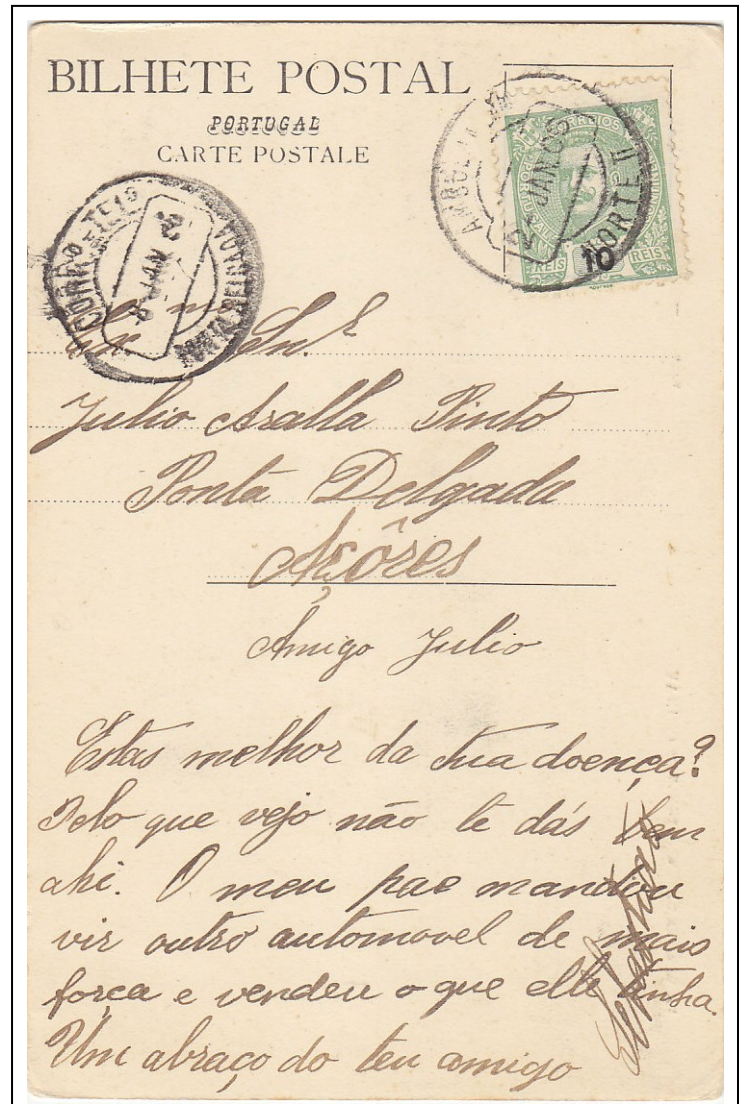 BILHETE POSTAL
PORTUGAL
CARTE POSTALE
AMBULANCIA
2-JAN.05
NORTE II
CORREIOS
PORTUGAL
REIS 10 REIS
CORREIO E TELO
8-JAN
PONTA DELGADA
Snr.
Julio Pinto
Ponta Delgada
Açôres
Amigo Julio
Estas melhor da tua doença?
Pelo que vejo não te dás bem
ahi. O meu pae mandou
vir outro automovel de mais
força e vendeu o que elle tinha.
Um abraço do teu amigo